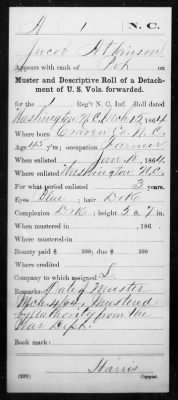 A 1 N. C.
Jacob Atkinson
Appears with rank of Pvt on
Muster and Descriptive Roll of a Detach-
ment of U. S. Vols. forwarded.
for the 1 Reg't N. C. Inf. Roll dated
Washington N.C. Mch 12, 1864
Where born Craven Co. N. C.
Age 43 y'rs; occupation Farmer
When enlisted Jan 18, 1864
Where enlisted Washington N.C.
For what period enlisted 3 years.
Eyes Blue; hair Dark
Complexion Dark; height 5 ft. 7 in.
When mustered in , 186 .
Where mustered-in
Bounty paid $ 100; due $ 100
Where credited
Company to which assigned L
Remarks: Date of muster
Mch 4, 64. Mustered
by authority from the
War Dept.
Book mark:
Harris
(339) Copyist.